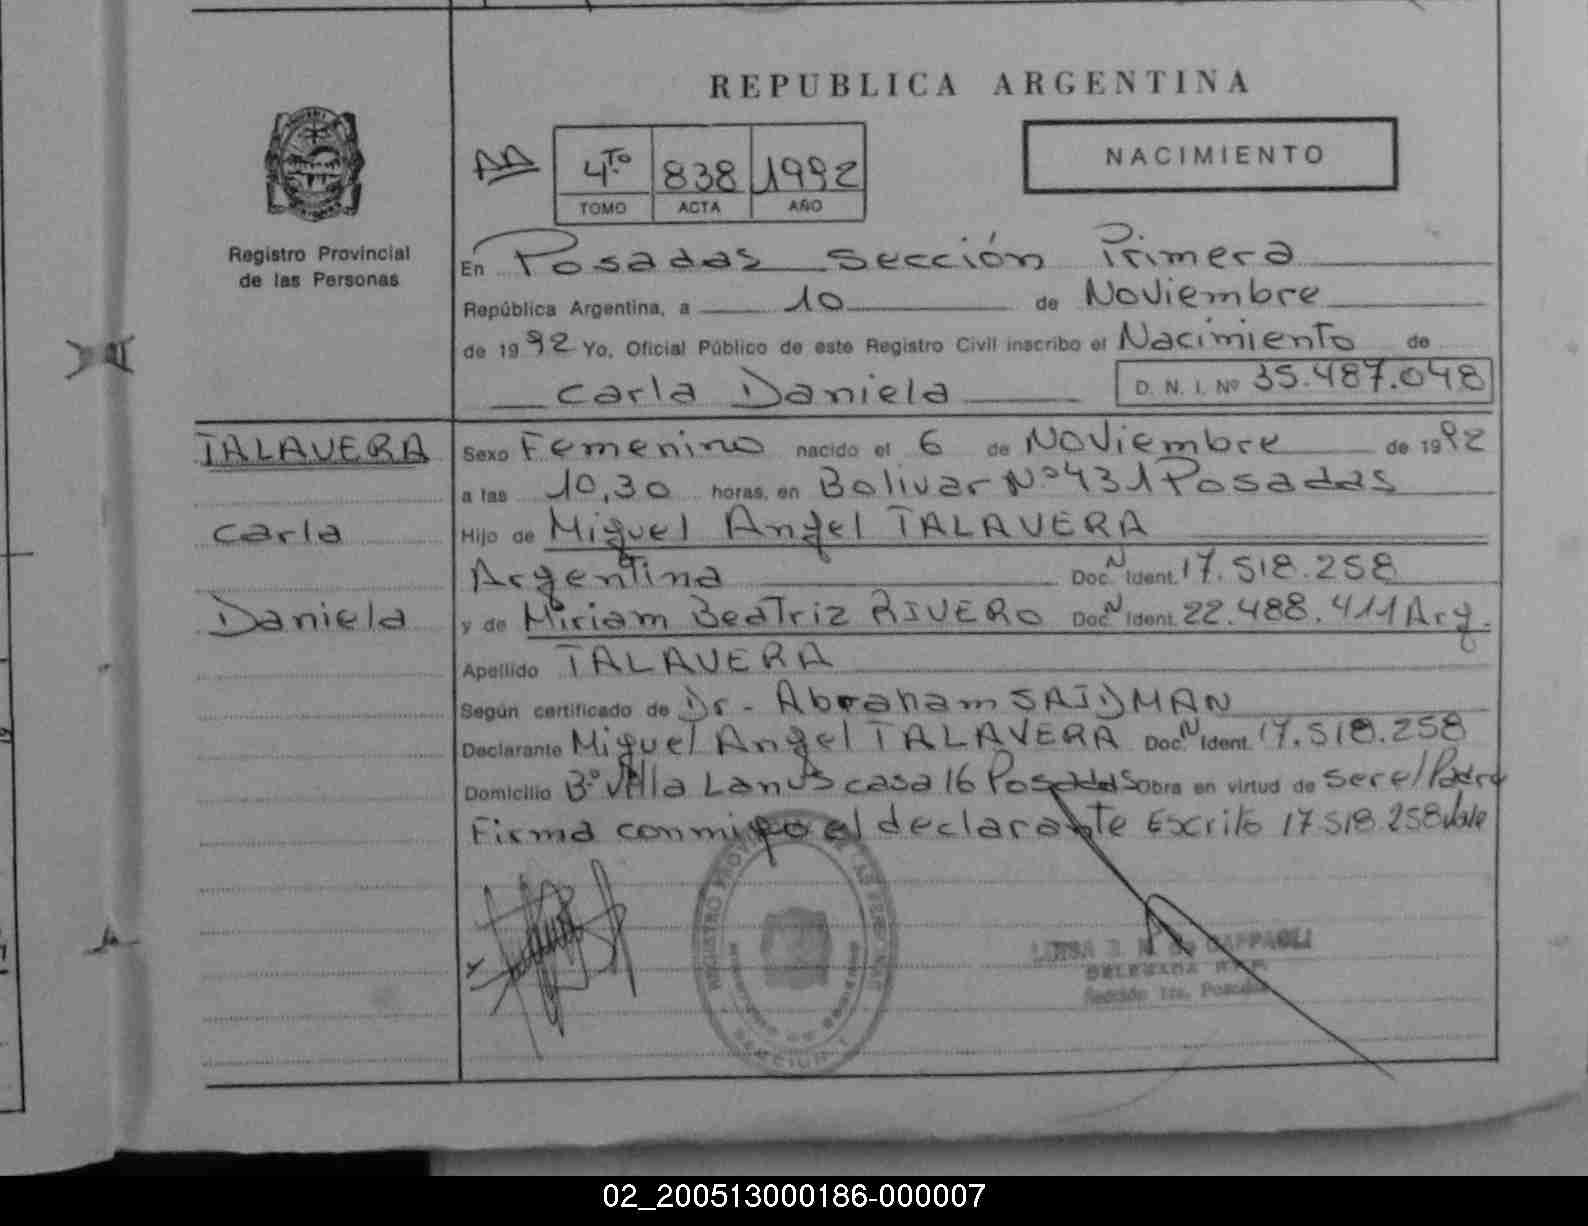 REPUBLICA ARGENTINA
NACIMIENTO
4To 838 1992
TOMO ACTA AÑO
Registro Provincial
de las Personas
En Posadas sección Primera
República Argentina, a 10 de Noviembre
de 1992 Yo, Oficial Público de este Registro Civil inscribo el Nacimiento de
Carla Daniela D. N. I. Nº 35.487.048
TALAVERA
Carla
Daniela
Sexo Femenino nacido el 6 de Noviembre de 1992
a las 10,30 horas, en Bolivar Nº 431 Posadas
Hijo de Miguel Angel TALAVERA
Argentina Doc. N Ident. 17.518.258
y de Miriam Beatriz RIVERO Doc. N Ident. 22.488.411 Arg.
Apellido TALAVERA
Según certificado de Dr. Abraham SAIDMAN
Declarante Miguel Angel TALAVERA Doc. N Ident. 17.518.258
Domicilio Bº Villa Lanus casa 16 Posadas Obra en virtud de ser el Padre
Firma conmigo el declarante Escrito 17.518.258 Vale
REGISTRO PROV DE LAS PERSONAS
SECCION 1
DELEGADA
Sección 1ra. Posadas
02_200513000186-000007